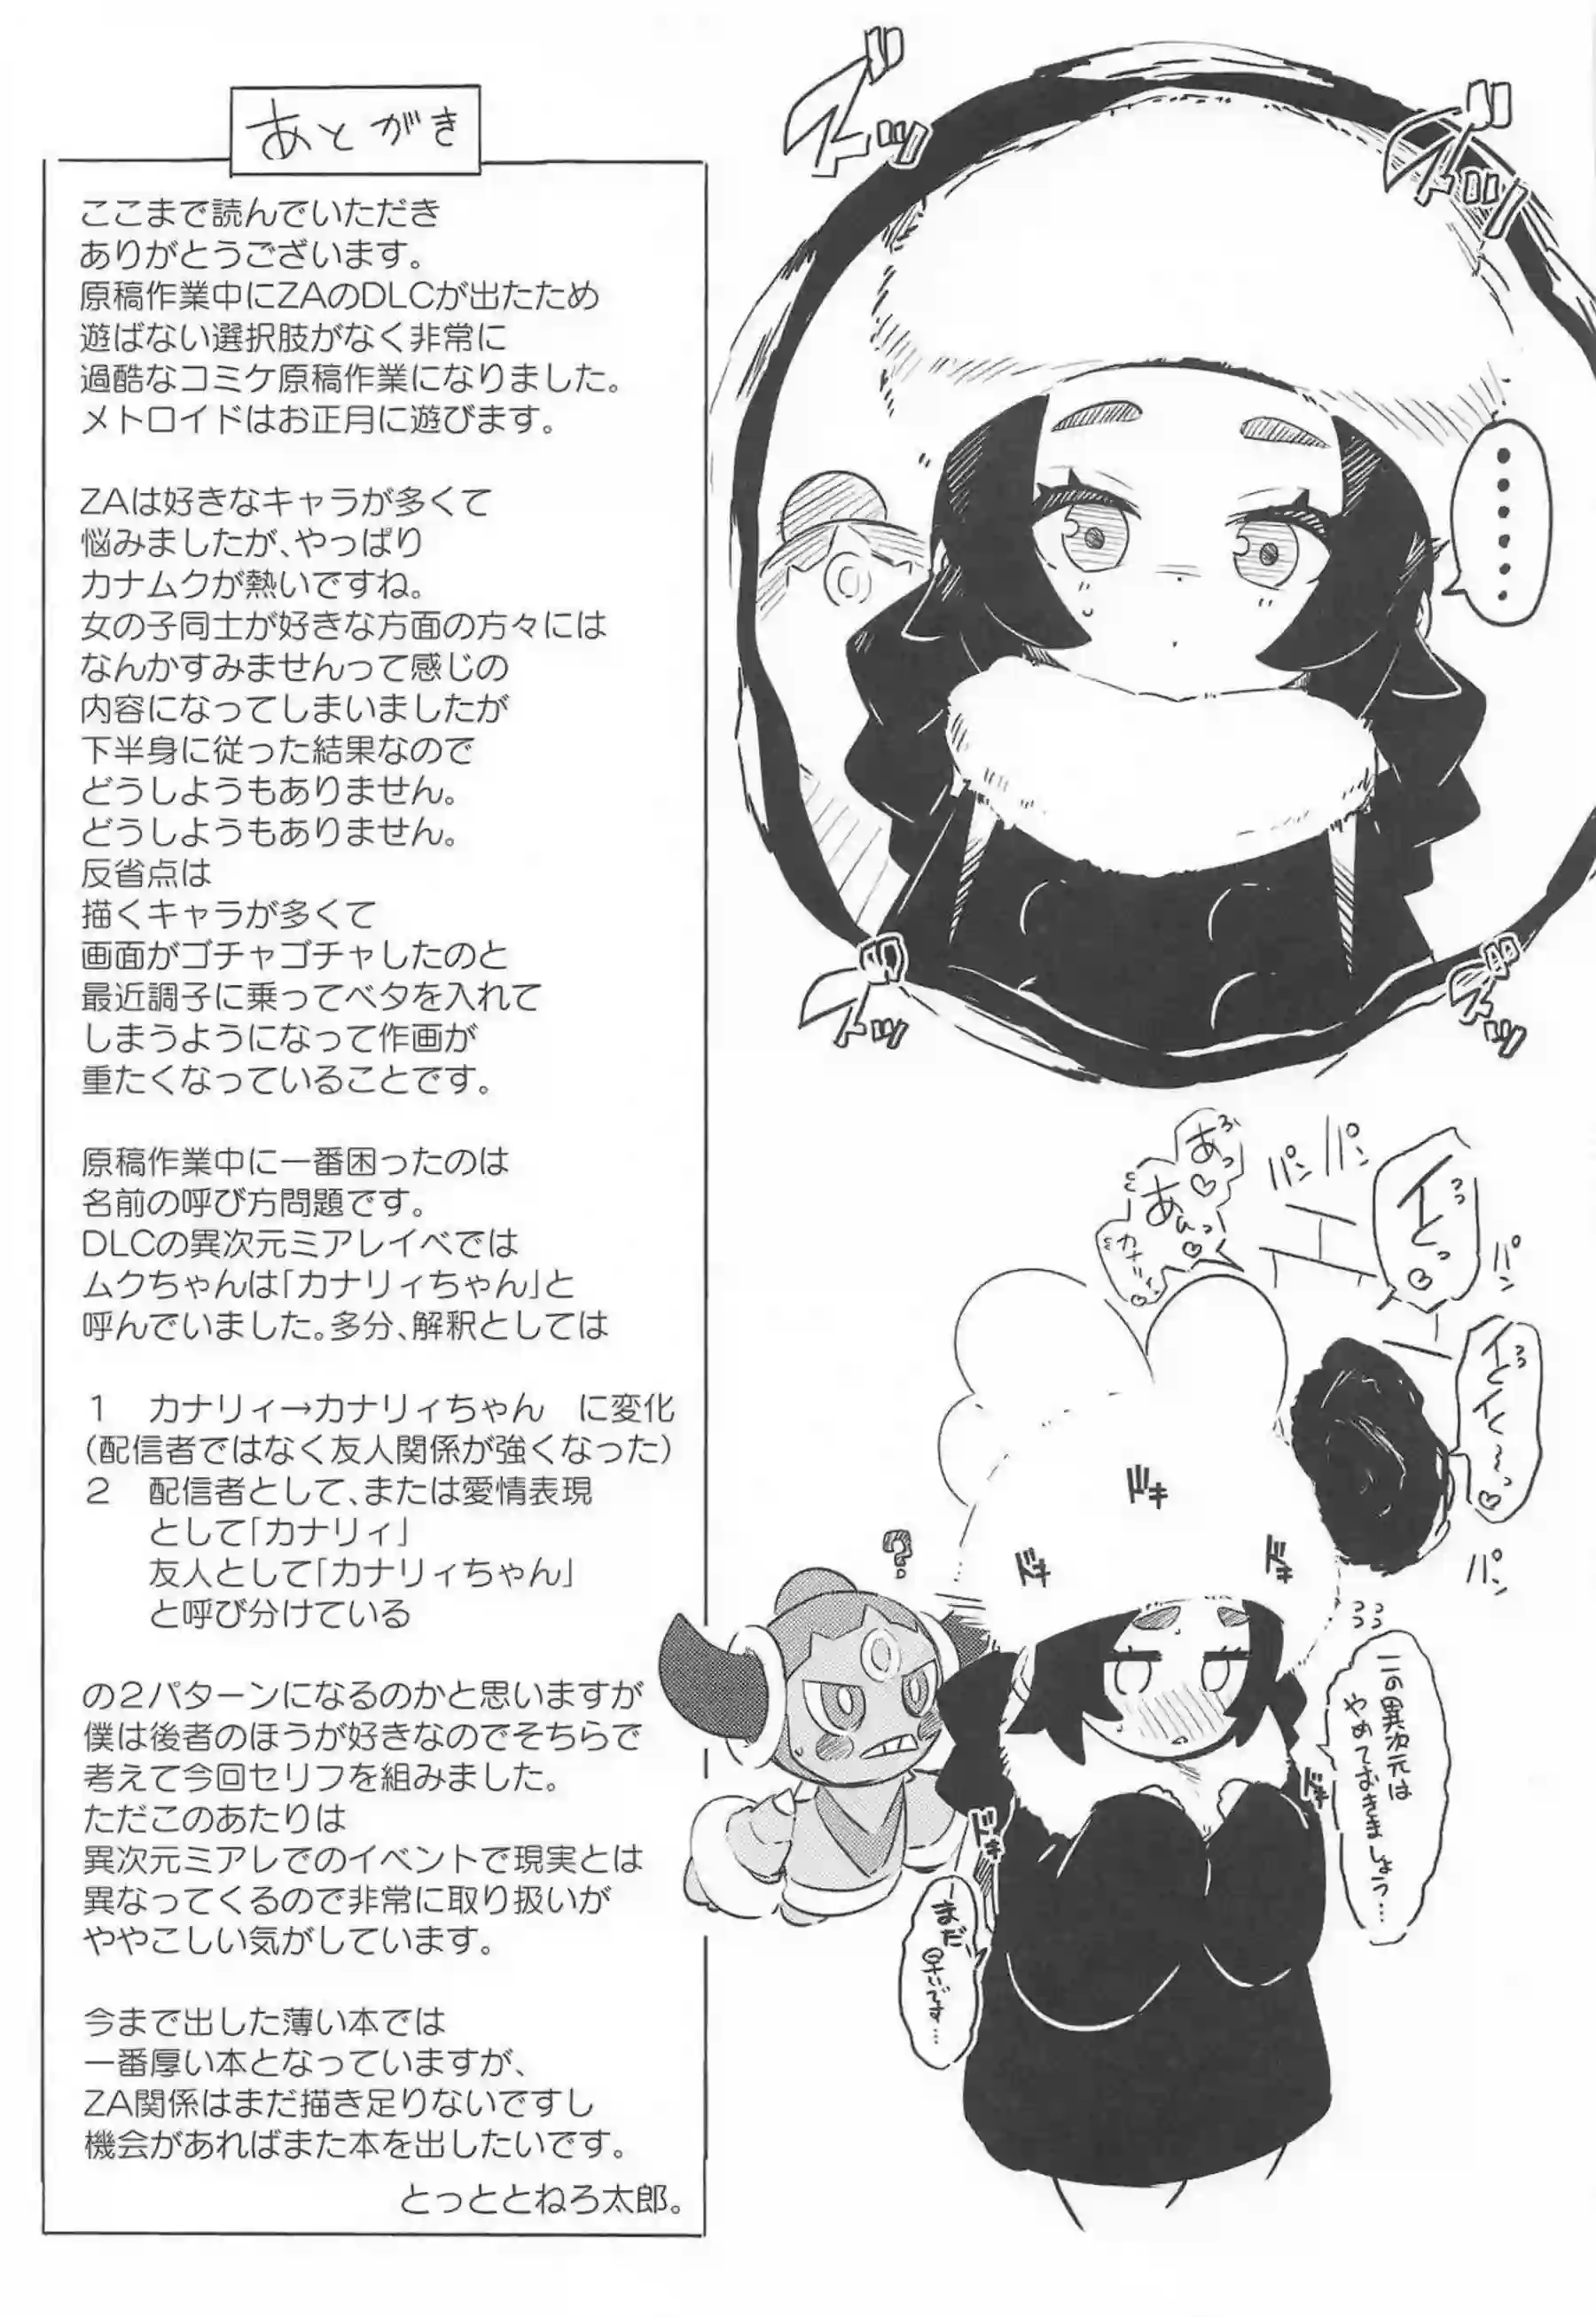 あとがき
ここまで読んでいただき
ありがとうございます。
原稿作業中にZAのDLCが出たため
遊ばない選択肢がなく非常に
過酷なコミケ原稿作業になりました。
メトロイドはお正月に遊びます。
ZAは好きなキャラが多くて
悩みましたが、やっぱり
カナムクが熱いですね。
女の子同士が好きな方面の方々には
なんかすみませんって感じの
内容になってしまいましたが
下半身に従った結果なので
どうしようもありません。
どうしようもありません。
反省点は
描くキャラが多くて
画面がゴチャゴチャしたのと
最近調子に乗ってベタを入れて
しまうようになって作画が
重たくなっていることです。
原稿作業中に一番困ったのは
名前の呼び方問題です。
DLCの異次元ミアレイベでは
ムクちゃんは「カナリィちゃん」と
呼んでいました。多分、解釈としては
1 カナリィ→カナリィちゃん に変化
(配信者ではなく友人関係が強くなった)
2 配信者として、または愛情表現
として「カナリィ」
友人として「カナリィちゃん」
と呼び分けている
の2パターンになるのかと思いますが
僕は後者のほうが好きなのでそちらで
考えて今回セリフを組みました。
ただこのあたりは
異次元ミアレでのイベントで現実とは
異なってくるので非常に取り扱いが
ややこしい気がしています。
今まで出した薄い本では
一番厚い本となっていますが、
ZA関係はまだ描き足りないですし
機会があればまた本を出したいです。
とっととねろ太郎。
ズズッ
ズズッ
ズズッ
ズズッ
……
?
この異次元は
やめておきましょう…
まだ
早いです…